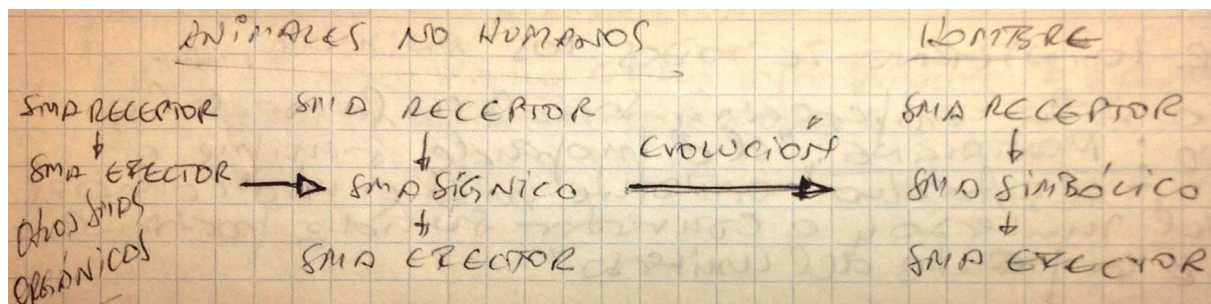 ANIMALES NO HUMANOS
HOMBRE
SMA RECEPTOR
SMA EFECTOR
OTROS SMAS
ORGÁNICOS
SMA RECEPTOR
SMA SÍGNICO
SMA EFECTOR
EVOLUCIÓN
SMA RECEPTOR
SMA SIMBÓLICO
SMA EFECTOR